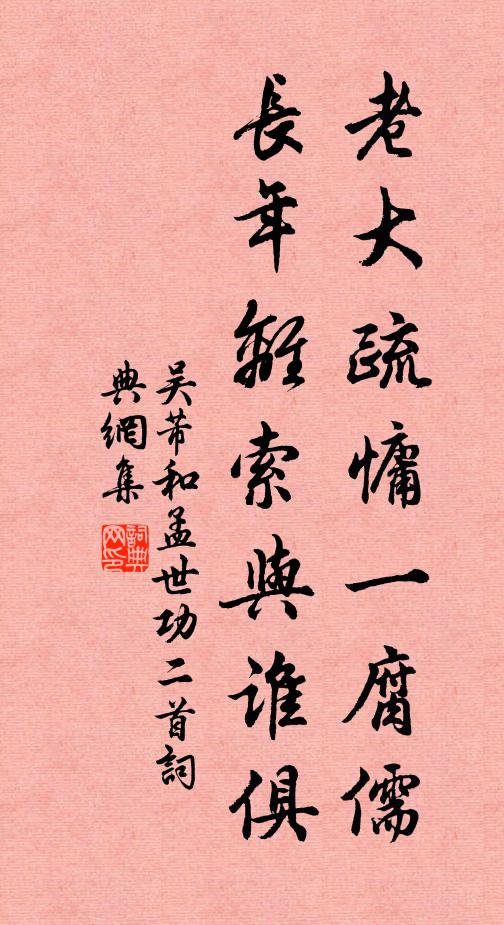 老大疏慵一腐儒
長年離索與誰俱
吴芾和孟世功二首詞
典網集
詞典
网印